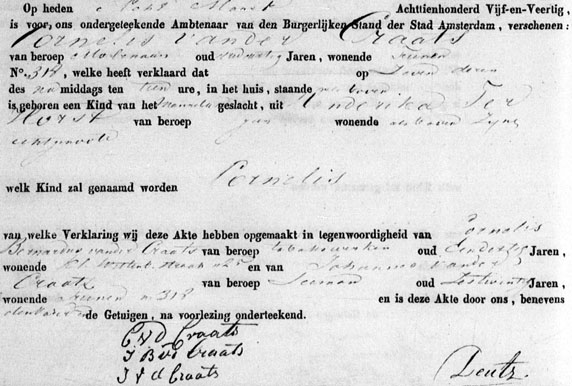 Op heden Acht Maart Achttienhonderd Vijf-en-Veertig,
is voor, ons ondergeteekende Ambtenaar van den Burgerlijken Stand der Stad Amsterdam, verschenen:
Cornelis van der Craats
van beroep oud Jaren, wonende
N°. 318, welke heeft verklaard dat op Zeven dezer
des na middags ten tien ure, in het huis, staande als boven
is geboren een Kind van het geslacht, uit Hendrika Ter
Horst van beroep geen wonende als boven Zijne
echtgenoote
welk Kind zal genaamd worden Cornelis
van welke Verklaring wij deze Akte hebben opgemaakt in tegenwoordigheid van Cornelis
Bernardus van der Craats van beroep oud Jaren,
wonende en van Johannes van der
Craats van beroep Zeeman oud Jaren,
wonende n 318 en is deze Akte door ons, benevens
de Getuigen, na voorlezing onderteekend.
C V d Craats
J B vd Craats
J V d Craats
Deutz.